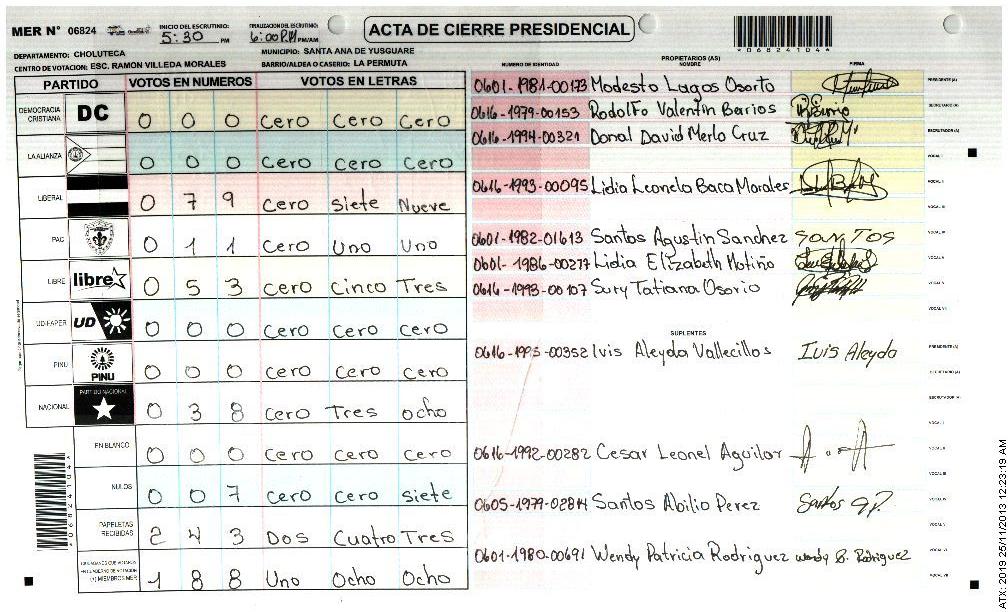 MER N° 06824
INICIO DEL ESCRUTINIO: 5:30 PM
FINALIZACION DEL ESCRUTINIO: 6:00 P.M PM/AM
ACTA DE CIERRE PRESIDENCIAL
*06824104*
DEPARTAMENTO: CHOLUTECA
MUNICIPIO: SANTA ANA DE YUSGUARE
CENTRO DE VOTACION: ESC. RAMON VILLEDA MORALES
BARRIO/ALDEA O CASERIO: LA PERMUTA
PARTIDO VOTOS EN NUMEROS VOTOS EN LETRAS
DEMOCRACIA CRISTIANA DC 0 0 0 Cero Cero Cero
LA ALIANZA 0 0 0 Cero Cero Cero
LIBERAL 0 7 9 Cero Siete Nueve
PAC 0 1 1 Cero Uno Uno
LIBRE libre 0 5 3 Cero Cinco Tres
UD-FAPER UD 0 0 0 Cero Cero Cero
PINU PINU 0 0 0 Cero Cero Cero
NACIONAL PARTIDO NACIONAL 0 3 8 Cero Tres Ocho
EN BLANCO 0 0 0 Cero Cero Cero
NULOS 0 0 7 Cero Cero Siete
PAPELETAS RECIBIDAS 2 4 3 Dos Cuatro Tres
CIUDADANOS QUE VOTARON EN CUADERNO DE VOTACION (+) MIEMBROS MER 1 8 8 Uno Ocho Ocho
*06824104*
PROPIETARIOS (AS)
NUMERO DE IDENTIDAD NOMBRE FIRMA
0601-1981-00173 Modesto Lagos Osorto PRESIDENTE (A)
0616-1979-00153 Rodolfo Valentin Berrios SECRETARIO (A)
0616-1994-00321 Donal David Merlo Cruz ESCRUTADOR (A)
VOCAL I
0616-1993-00095 Lidia Leonela Baca Morales VOCAL II
VOCAL III
0601-1982-01613 Santos Agustin Sanchez SANTOS VOCAL IV
0601-1986-00277 Lidia Elizabeth Motiño VOCAL V
0616-1993-00107 Sury Tatiana Osorio VOCAL VI
VOCAL VII
SUPLENTES
0616-1995-00352 Ivis Aleyda Vallecillos Ivis Aleyda PRESIDENTE (A)
SECRETARIO (A)
ESCRUTADOR (A)
VOCAL I
VOCAL II
0616-1992-00282 Cesar Leonel Aguilar
VOCAL III
0605-1979-02814 Santos Abilio Perez Santos VOCAL IV
VOCAL V
0601-1980-00691 Wendy Patricia Rodriguez Wendy P. Rodriguez VOCAL VI
VOCAL VII
ATX: 2019 25/11/2013 12:23:19 AM